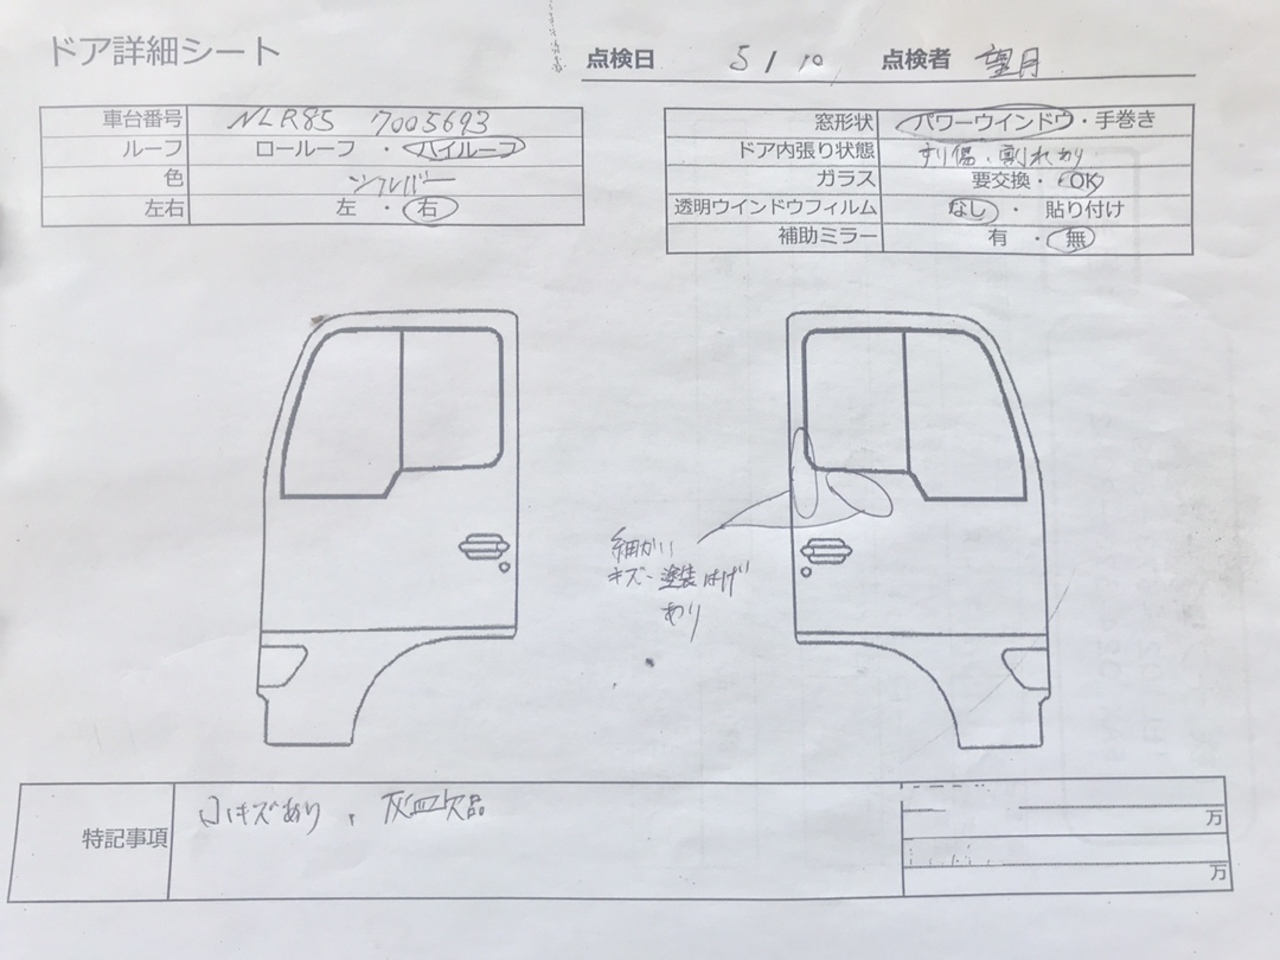 ドア詳細シート
点検日 5/10 点検者 望月
車台番号 NLR85 7005693
ルーフ ロールーフ ・ ハイルーフ
色 シルバー
左右 左 ・ 右
窓形状 パワーウインドウ・手巻き
ドア内張り状態 すり傷、割れあり
ガラス 要交換・OK
透明ウインドウフィルム なし ・ 貼り付け
補助ミラー 有 ・ 無
細かい
キズ・塗装はげ
あり
特記事項 キズあり、灰皿欠品
万
万